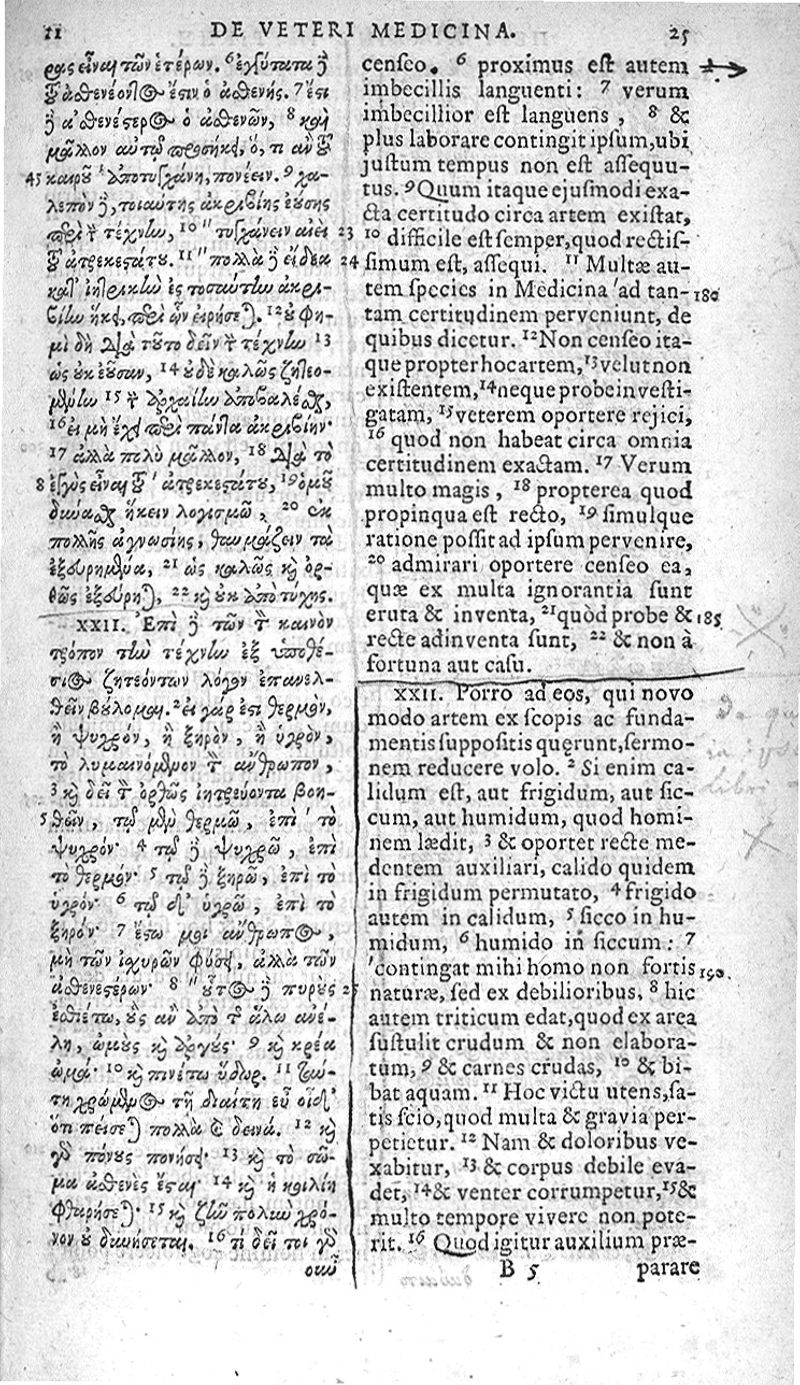 11 DE VETERI MEDICINA. 25
ρὰς εἶναι τῶν ἑτέρων. ⁶ ἐγγύτατα ἢ
τοῦ ἀσθενέοντός ἐστιν ὁ ἀσθενής. ⁷ ἔτι
δὲ ἀσθενέστερος ὁ ἀσθενῶν, ⁸ καὶ
μᾶλλον αὐτῷ προσήκει, ὅ, τι ἂν τοῦ
45 καιροῦ ἀποτυγχάνῃ, πονέειν. ⁹ χα-
λεπὸν δὲ, τοιαύτης ἀκριβίης ἐούσης
περὶ τὴν τέχνην, ¹⁰ " τυγχάνειν αἰεὶ 23
τοῦ ἀτρεκεστάτου. ¹¹ " πολλὰ δὲ εἴδεα 24
κατ' ἰητρικὴν ἐς τοσαύτην ἀκρι-
βίην ἥκει, περὶ ὧν εἰρήσεται. ¹² οὔ φη-
μι δὴ διὰ τοῦτο δεῖν τὴν τέχνην ¹³
ὡς οὐκ ἐοῦσαν, ¹⁴ οὐδὲ καλῶς ζητεο-
μένην ¹⁵ τὴν ἀρχαίην ἀποβαλέσθαι,
¹⁶ εἰ μὴ ἔχει περὶ πάντα ἀκριβίην·
¹⁷ ἀλλὰ πολὺ μᾶλλον, ¹⁸ διὰ τὸ
8 ἐγγὺς εἶναι τοῦ ' ἀτρεκεστάτου, ¹⁹ ὁμοῦ
δύνασθαι ἥκειν λογισμῷ, ²⁰ ἐκ
πολλῆς ἀγνωσίης, θαυμάζειν τὰ
ἐξευρημένα, ²¹ ὡς καλῶς καὶ ὀρ-
θῶς ἐξεύρηται, ²² καὶ οὐκ ἀπὸ τύχης.
XXII. Ἐπὶ δὲ τῶν τὸν καινὸν
τρόπον τὴν τέχνην ἐξ ὑποθέ-
σιος ζητεόντων λόγον ἐπανελ-
θεῖν βούλομαι. ² εἰ γάρ ἐστι θερμὸν,
ἢ ψυχρὸν, ἢ ξηρὸν, ἢ ὑγρὸν,
τὸ λυμαινόμενον τὸν ἄνθρωπον,
³ καὶ δεῖ τὸν ὀρθῶς ἰητρεύοντα βοη-
5 θεῖν, τῷ μὲν θερμῷ, ἐπὶ ' τὸ
ψυχρόν· ⁴ τῷ δὲ ψυχρῷ, ἐπὶ
τὸ θερμόν· ⁵ τῷ δὲ ξηρῷ, ἐπὶ τὸ
ὑγρόν· ⁶ τῷ δ' ὑγρῷ, ἐπὶ τὸ
ξηρόν· ⁷ ἔστω μοι ἄνθρωπος,
μὴ τῶν ἰσχυρῶν φύσει, ἀλλὰ τῶν
ἀσθενεστέρων· ⁸ " οὗτος δὲ πυροὺς 25
ἐσθιέτω, οὓς ἂν ἀπὸ τῆς ἅλω ἀνέ-
λῃ, ὠμοὺς καὶ ἀργούς· ⁹ καὶ κρέα
ὠμά· ¹⁰ καὶ πινέτω ὕδωρ. ¹¹ ταύ-
τῃ χρώμενος τῇ διαίτῃ εὖ οἶδ'
ὅτι πείσεται πολλὰ καὶ δεινά. ¹² καὶ
γὰρ πόνους πονήσει· ¹³ καὶ τὸ σῶ-
μα ἀσθενὲς ἔσται· ¹⁴ καὶ ἡ κοιλίη
φθαρήσεται· ¹⁵ καὶ ζῆν πολὺν χρό-
νον οὐ δυνήσεται. ¹⁶ τί δεῖ τοι γὰρ
οὖν
censeo. ⁶ proximus est autem
imbecillis languenti: ⁷ verum
imbecillior est languens, ⁸ &
plus laborare contingit ipsum, ubi
justum tempus non est assequu-
tus. ⁹ Quum itaque ejusmodi exa-
cta certitudo circa artem existat,
¹⁰ difficile est semper, quod rectis-
simum est, assequi. ¹¹ Multæ au-
tem species in Medicina ' ad tan- 180
tam certitudinem perveniunt, de
quibus dicetur. ¹² Non censeo ita-
que propter hoc artem, ¹³ velut non
existentem, ¹⁴ neque probe investi-
gatam, ¹⁵ veterem oportere rejici,
¹⁶ quod non habeat circa omnia
certitudinem exactam. ¹⁷ Verum
multo magis, ¹⁸ propterea quod
propinqua est recto, ¹⁹ simulque
ratione possit ad ipsum pervenire,
²⁰ admirari oportere censeo ea,
quæ ex multa ignorantia sunt
eruta & inventa, ²¹ quòd probe & 185
recte adinventa sunt, ²² & non à
fortuna aut casu.
XXII. Porro ad eos, qui novo
modo artem ex scopis ac funda-
mentis suppositis quęrunt, sermo-
nem reducere volo. ² Si enim ca-
lidum est, aut frigidum, aut sic-
cum, aut humidum, quod homi-
nem lædit, ³ & oportet recte me-
dentem auxiliari, calido quidem
in frigidum permutato, ⁴ frigido
autem in calidum, ⁵ sicco in hu-
midum, ⁶ humido in siccum: ⁷
' contingat mihi homo non fortis 190.
naturæ, sed ex debilioribus, ⁸ hic
autem triticum edat, quod ex area
sustulit crudum & non elabora-
tum, ⁹ & carnes crudas, ¹⁰ & bi-
bat aquam. ¹¹ Hoc victu utens, sa-
tis scio, quod multa & gravia per-
petietur. ¹² Nam & doloribus ve-
xabitur, ¹³ & corpus debile eva-
det, ¹⁴ & venter corrumpetur, ¹⁵ &
multo tempore vivere non pote-
rit. ¹⁶ Quod igitur auxilium præ-
B 5 parare